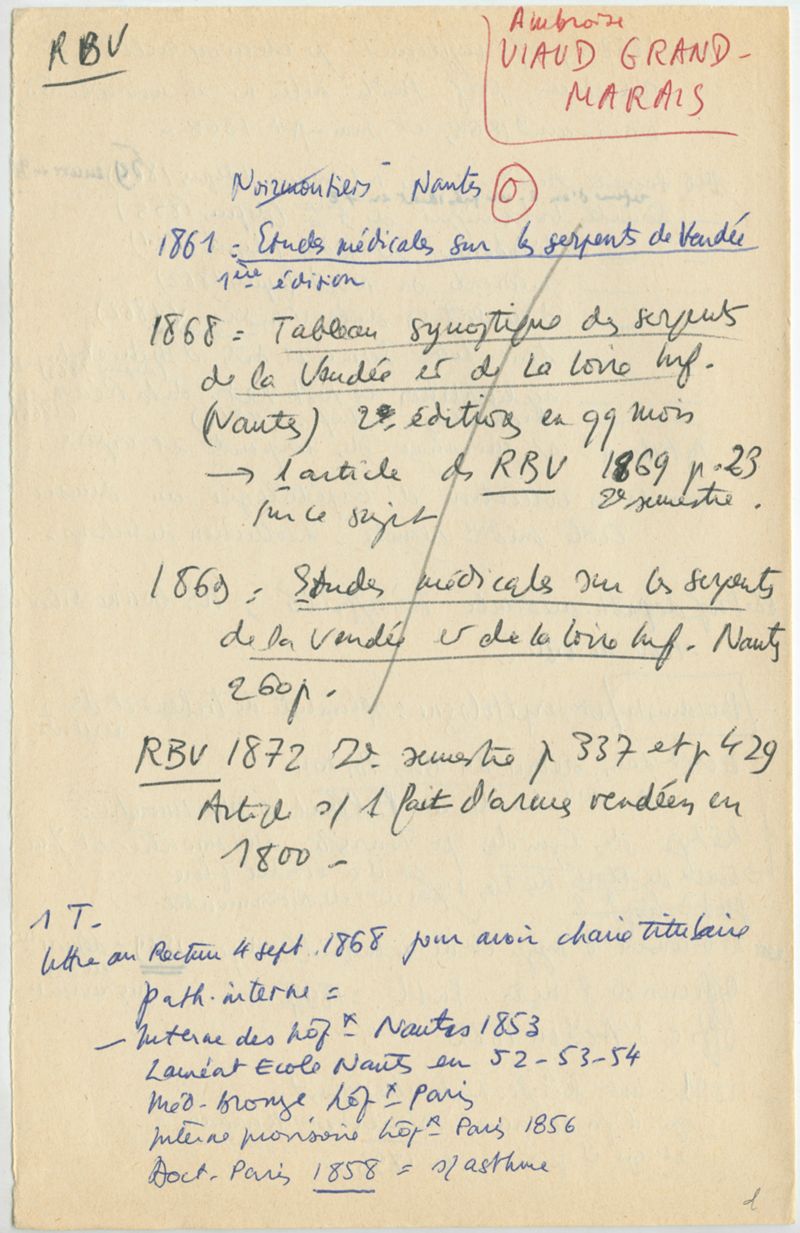 RBV
Ambroise
VIAUD GRAND-
MARAIS
Noirmoutiers Nantes O
1861 = Etudes médicales sur les serpents de Vendée
1ère édition
1868 = Tableau synoptique des serpents
de la Vendée et de la Loire Inf.
(Nantes) 2e éditions en qq mois
→ 1 article ds RBV 1869 p. 23
sur ce sujet 2e semestre.
1869 = Etudes médicales sur les serpents
de la Vendée et de la Loire Inf. Nantes
260 p.
RBV 1872 2e semestre p 337 et p 429
Article s/ 1 fait d'armes vendéen en
1800 -
1 T.
lettre au Recteur 4 sept. 1868 pour avoir chaire titulaire
path. interne =
- Interne des hôpx Nantes 1853
Lauréat Ecole Nantes en 52-53-54
Méd-bronze hôpx Paris
Interne provisoire hôpx Paris 1856
Doct. Paris 1858 = s/ asthme